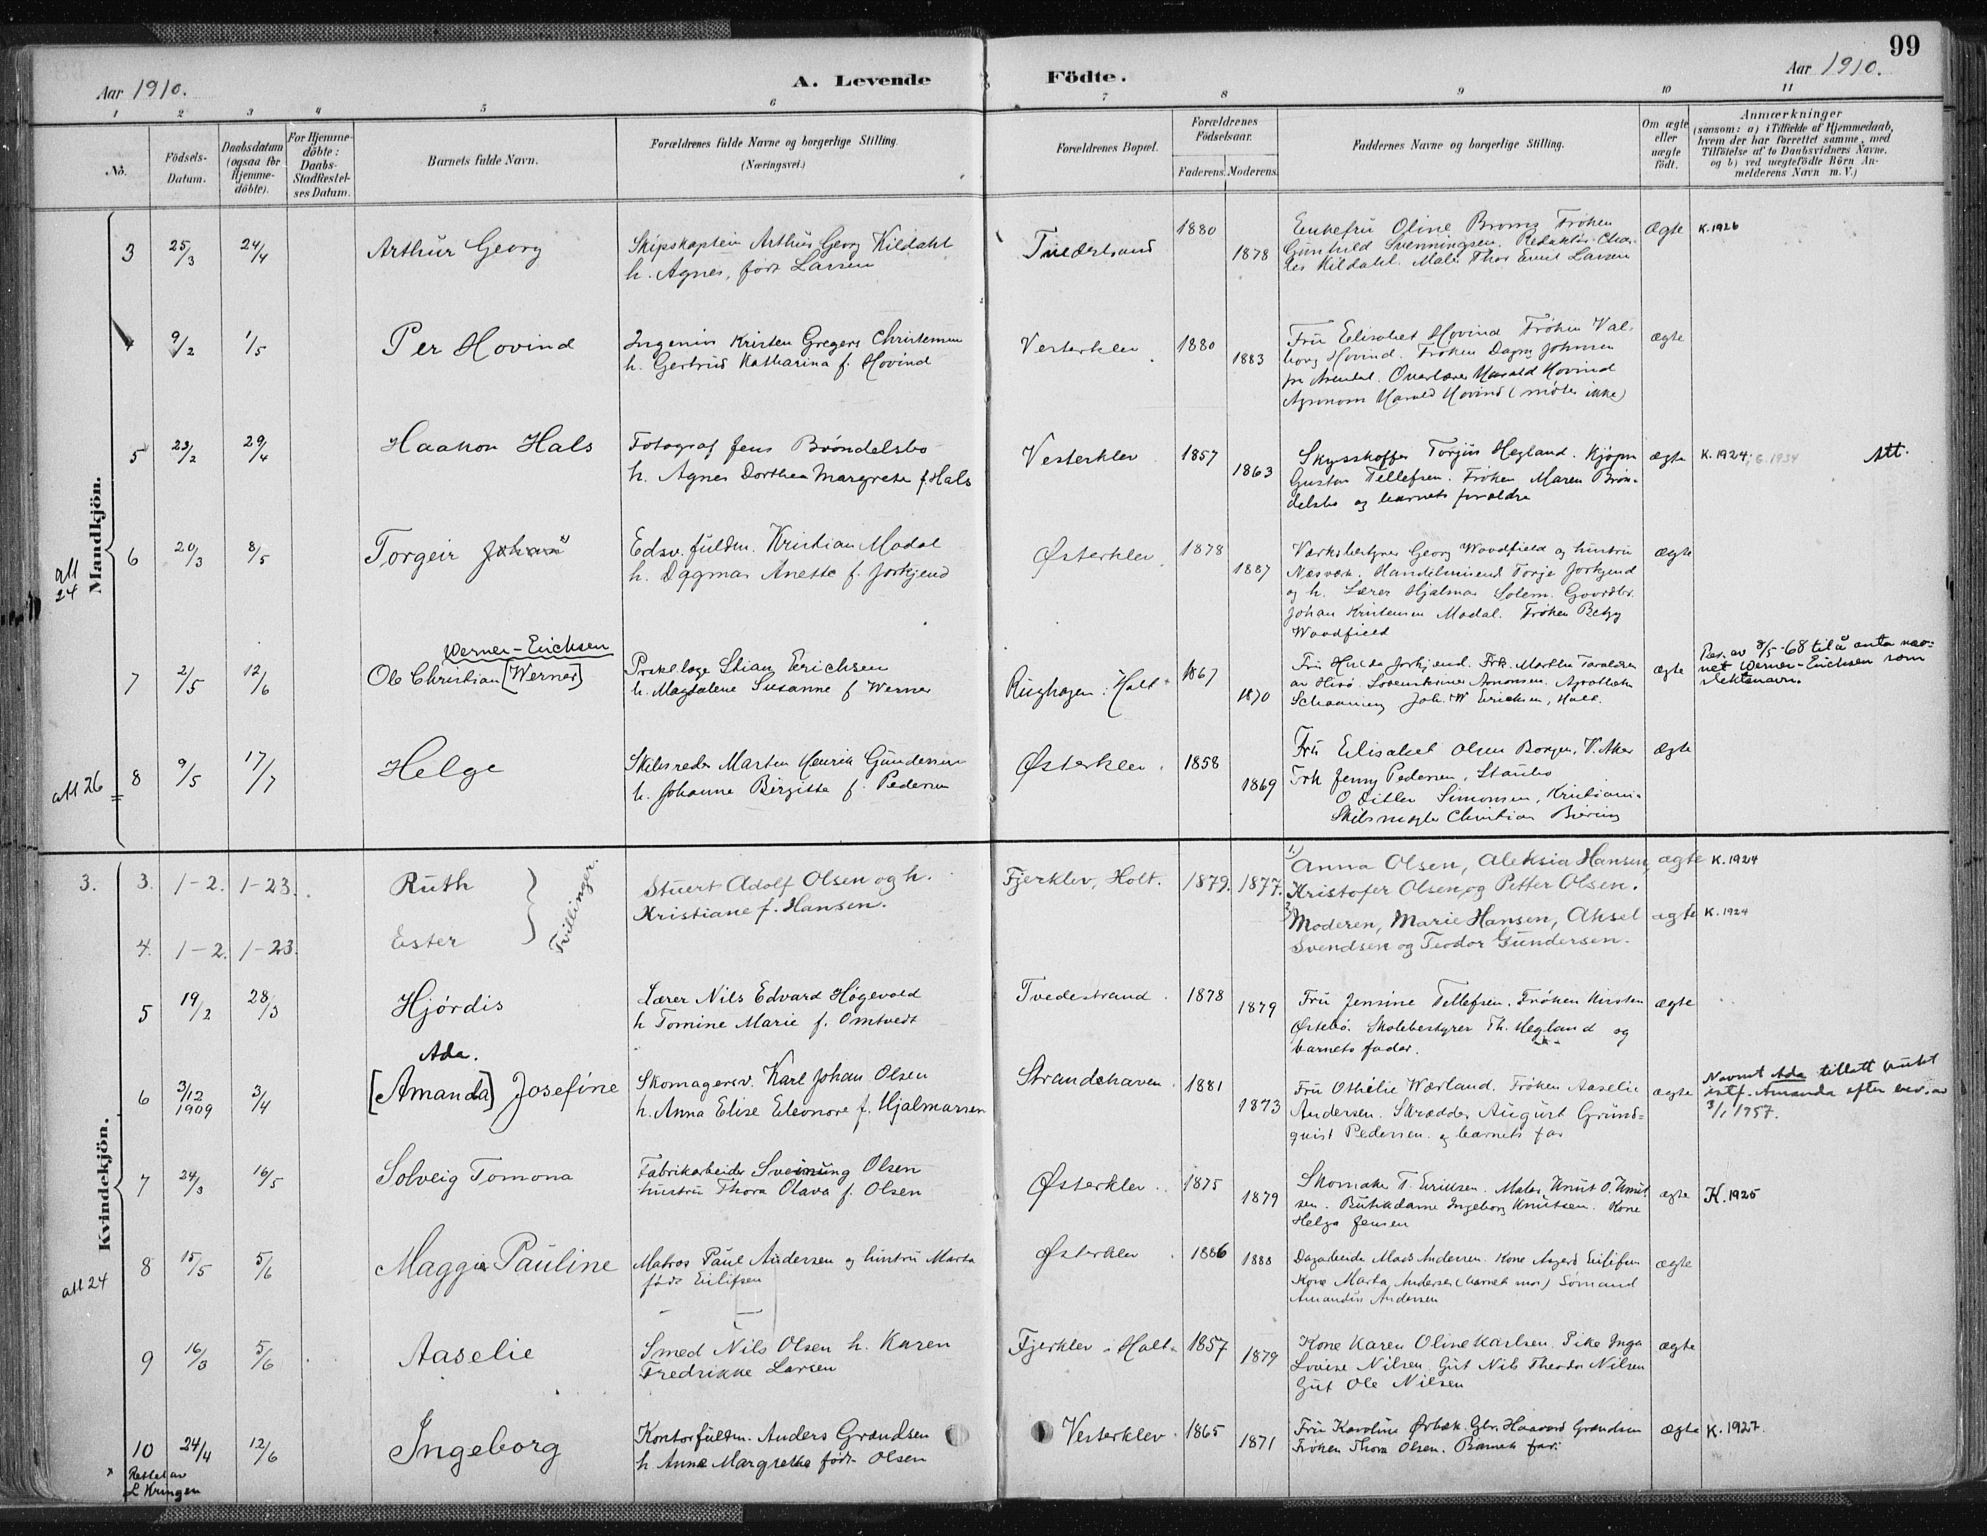 99
Aar 1910.
A. Levende Födte.
Aar 1910.
1 2 3 4 5 6 7 8 9 10 11
No.
Födsels-Datum.
Daabsdatum (ogsaa for Hjemmedöbte).
For Hjemmedöbte: Daabs-Stadfestelses Datum.
Barnets fulde Navn.
Forældrenes fulde Navne og borgerlige Stilling. (Næringsvei.)
Forældrenes Bopæl.
Forældrenes Födselsaar.
Faderens. Moderens.
Faddernes Navne og borgerlige Stilling.
Om ægte eller uægte födt.
Anmærkninger
(saasom: a) i Tilfælde af Hjemmedaab, hvem der har forrettet samme, med Tilföielse af to Daabsvidners Navne, og b) ved uægtefödte Börn Anmelderens Navn m. V.)
Mandkjön.
3 25/3 24/4 Arthur Georg
Skipskaptein Arthur Georg Kildahl
h. Agnes, født Larsen
Tvedestrand 1880 1878
Enkefru Oline Frøken
Gunhild Svenningsen. Redaktør Char-
les Kildahl. Maler Thor Emil Larsen
Ægte K. 1926
9/2 1/5 Per Hovind
Ingeniør Kristen Gregers Christensen
h. Gertrud Katharina f. Hovind
Vesterklev 1880 1883
Fru Elisabet Hovind Frøken Val-
borg Hovind. Frøken Dagny Johnsen
fra Arendal. Overlærer Harald Hovind
Agronom Harald Hovind (møter ikke)
ægte
5 23/2 29/4 Haakon Hals
Fotograf Jens Brøndelsbo
h. Agnes Dorthea Margrete f. Hals
Vesterklev 1857 1863
Skysskaffer Torjus Hegland. Kjøpm
Gustav Tellefsen. Frøken Maren Brøn-
delsbo og barnets forældre
ægte K. 1924; G. 1934 Att.
all 24
6 20/3 8/5 Torgeir Johan
Edsv. fuldm. Kristian Modal
h. Dagmar Anette f. Jorkjend
Østerklev 1878 1887
Verksbestyrer Georg Woodfield og hustru
Næsverk. Torje Jorkjend
og h. Lærer Hjalmar Solem. Gaardbr.
Johan Kristensen Modal. Frøken Betzy
Woodfield
ægte
Werner-Erichsen
7 2/5 12/6 Ole Christian [Werner]
Stian Erichsen
h. Magdalene Susanne f Werner
Holt 1867 1870
Fru Hulda Jorkjend. Frk. Marthe
Schanning Joh. W Erichsen, Holt.
ægte
Res. av 8/5-68 til å anta nav-
net Werner-Erichsen som
slektsnavn.
all 26
8 9/5 17/7 Helge
Skibsreder Marten Henrik Gundersen
h. Johanne Birgitte f. Pedersen
Østerklev. 1858 1869
Fru Elisabet Olsen Borgen, V. Aker
Frk Jenny Pedersen, Staubo
O. Ditlev Simonsen, Kristiani-
Skibsmægler Christian Biering
ægte
Kvindekjön.
3. 3. 1-2. 1-23. Ruth
Tvillinger.
Stuert Adolf Olsen og h.
Kristiane f. Hansen.
Fjerklev, Holt. 1879. 1877.
1) Anna Olsen, Aleksia Hansen,
Kristofer Olsen og Petter Olsen.
ægte K. 1924
4. 1-2. 1-23. Ester
2) Moderen, Marie Hansen, Aksel
Svendsen og Teodor Gundersen.
ægte K. 1924
5 19/2 28/3 Hjørdis
Lærer Nils Edvard Høgevold
h Tomine Marie f. Omtvedt
Tvedestrand. 1878 1879
Fru Jensine Tellefsen. Frøken Kirsten
Østebø. Skolebestyrer Th. Hegland og
barnets fader.
ægte
Ada.
6 3/12 1909 3/4 [Amanda] Josefine
Skomagersv. Karl Johan Olsen
h. Anna Elise Eleonore f. Hjalmarsen
Strandehaven 1881 1873
Fru Othilie Wærland. Frøken Aaselie
Andersen. Skrædder August Grund-
quist Pedersen. og barnets far
ægte
Navnet Ada tillatt brukt
istf. Amanda efter bev. av
3/1 1957.
7 24/3 16/5 Solveig Tomona
Fabrikarbeider Sveinung Olsen
hustru Thora Olava f. Olsen
Østerklev. 1875 1879
Skomaker T. Eriksen. Maler Knut O. Knut-
sen. Butikdame Ingeborg Knutsen. Kone
Helga Jensen
ægte K. 1925
all 24
8 15/5 5/6 Maggie Pauline
Matros Paul Andersen og hustru Marta
født Eilifsen
Østerklev. 1886 1888
Dagarbeider Mads Andersen. Kone Aagot Eilifsen
Kone Marta Andersen (barnets mor) Sømand
Amandus Andersen
ægte
9 16/3 5/6 Aaselie
Smed Nils Olsen h. Karen
Fredrikke Larsen
Fjerklev i Holt. 1857 1879
Kone Karen Oline Karlsen. Pike Inga
Lovise Nilsen. Gut Nils Theodor Nilsen
Gut Ole Nilsen
ægte
10 24/4 12/6 Ingeborg
Kontorfuldm. Anders Grandsen
h Anne Margrethe født Olsen
Vesterklev 1865 1871
Fru Karoline Ørbæk. Gbr. Haavard Grandsen
Frøken Thora Olsen. Barnets far.
ægte K. 1927.
Rettet av
L Kringen